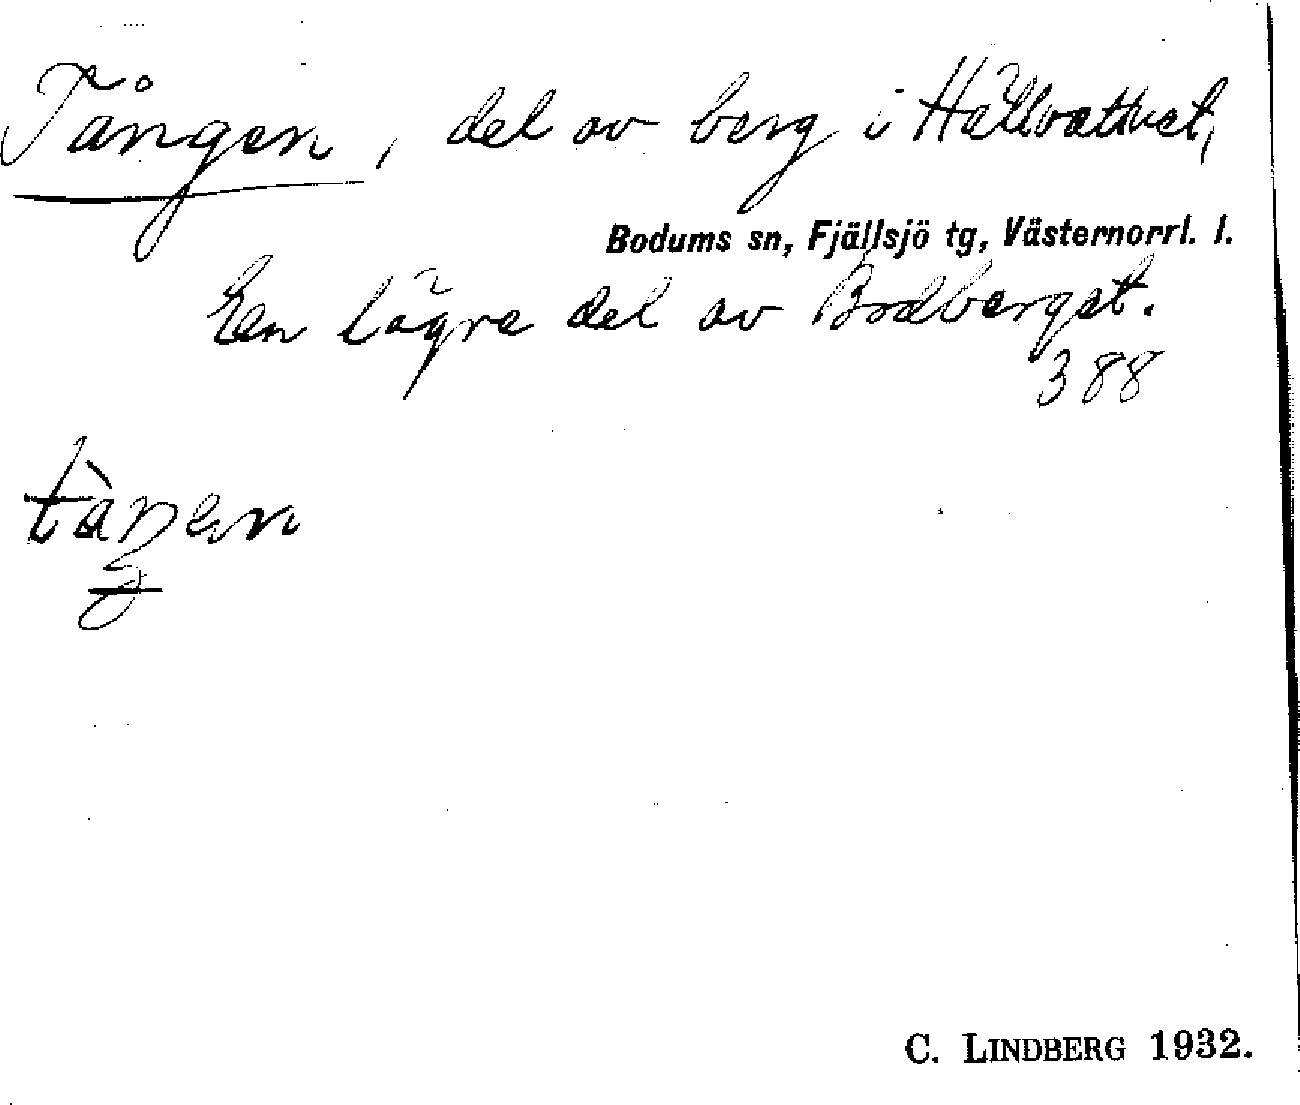 Tången, del av berg i Hällvattnet,
Bodums sn, Fjällsjö tg, Västernorrl. l.
En lägre del av Bodberget.
388
C. LINDBERG 1932.